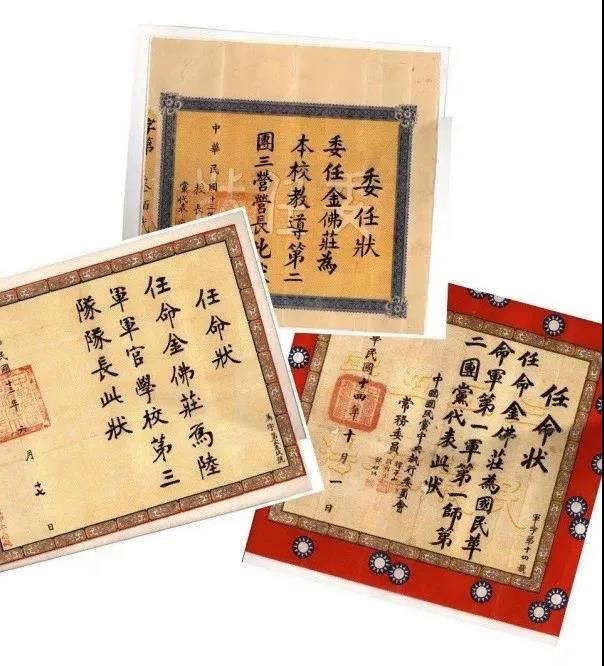 委任狀
委任金佛莊為
本校教導第二
團三營營長此
中華民國十三
校長
黨代表
字第
任命狀
任命金佛莊為陸
軍軍官學校第三
隊隊長此狀
民國十三年六月十七日
任命狀
任命金佛莊為國民革
命軍第一軍第一師第
二團黨代表此狀
中國國民黨中央執行委員會
常務委員
華民國十四年十月一日
軍字第十四號